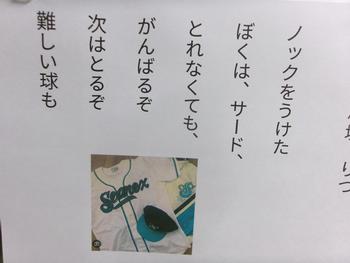 ノックをうけた
ぼくは、サード、
とれなくても、
がんばるぞ
次はとるぞ
難しい球も